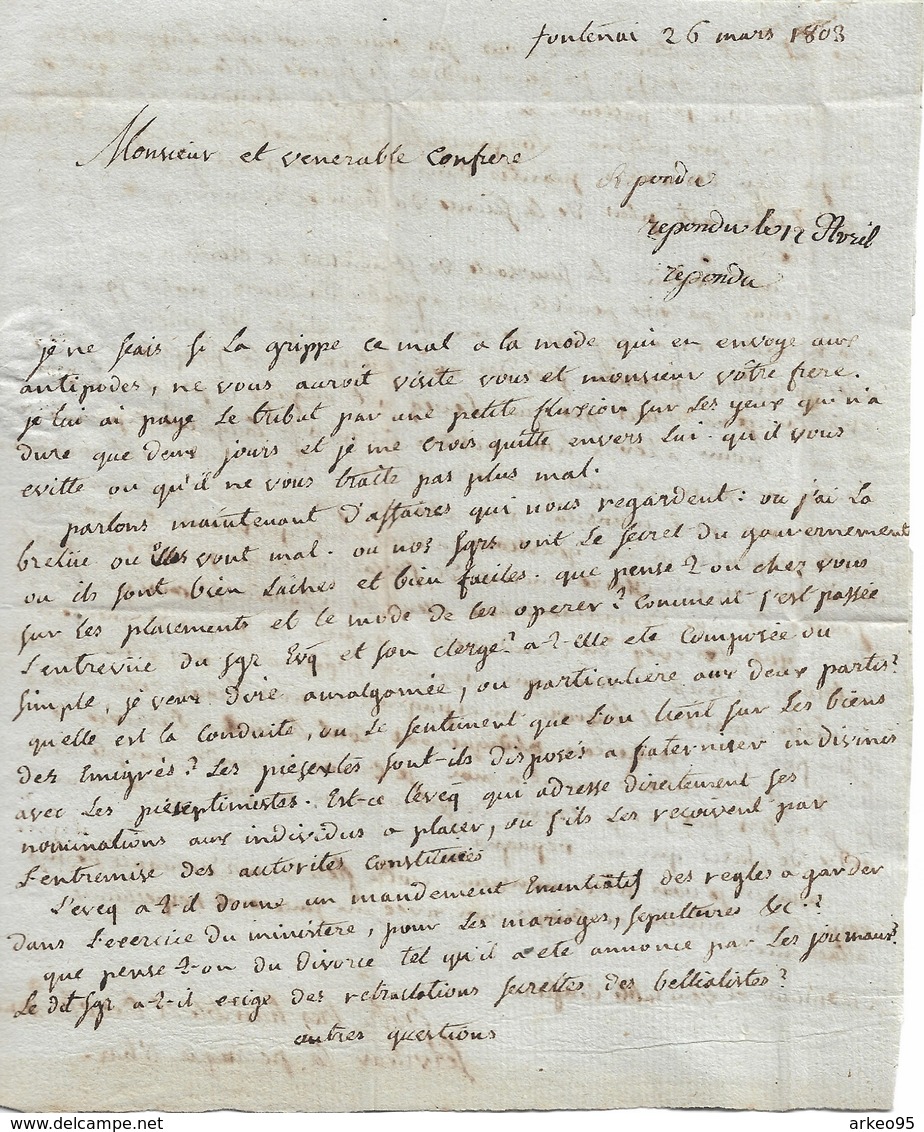 fontenai 26 mars 1803
Monsieur et venerable confrere
repondu
repondu le 12 Avril
repondu
je ne scais si la grippe ce mal a la mode qui en envoye aux
antipodes, ne vous auroit visité vous et monsieur vôtre frere.
je lui ai paye le tribut par une petite fluxion sur les yeux qui n'a
dure que deux jours et je me crois quitte envers lui. qu'il vous
evitte ou qu'il ne vous traite pas plus mal.
parlons maintenant d'affaires qui nous regardent : ou j'ai la
brelüe ou elles vont mal. ou nos sgrs ont le secret du gouvernement
ou ils sont bien laches et bien faciles. que pense-t-on chez vous
sur les placements et le mode de les operer ? comment s'est passée
l'entrevüe du sgr Evq et son clergé ? a-t-elle ete composée ou
simple, je veux dire amalgamée, ou particuliere aux deux partis ?
quelle est la conduite, ou le sentiment que l'on tient sur les biens
des Emigrés ? les
sont-ils disposés a fraterniser in divinis
avec les
Est-ce l'eveq qui adresse directement ses
nominations aux individus a placer, ou s'ils les reçoivent par
l'entremise des autorités constituées
l'eveq a-t-il donne un mandement Enuntiatif des regles a garder
dans l'exercice du ministere, pour les mariages, sepultures &c. ?
que pense-t-on du divorce tel qu'il a ete annonce par les journaux ?
le dit sgr a-t-il exige des retractations secrettes des bellialistes ?
autres questions
delcampe.net
arkeo95